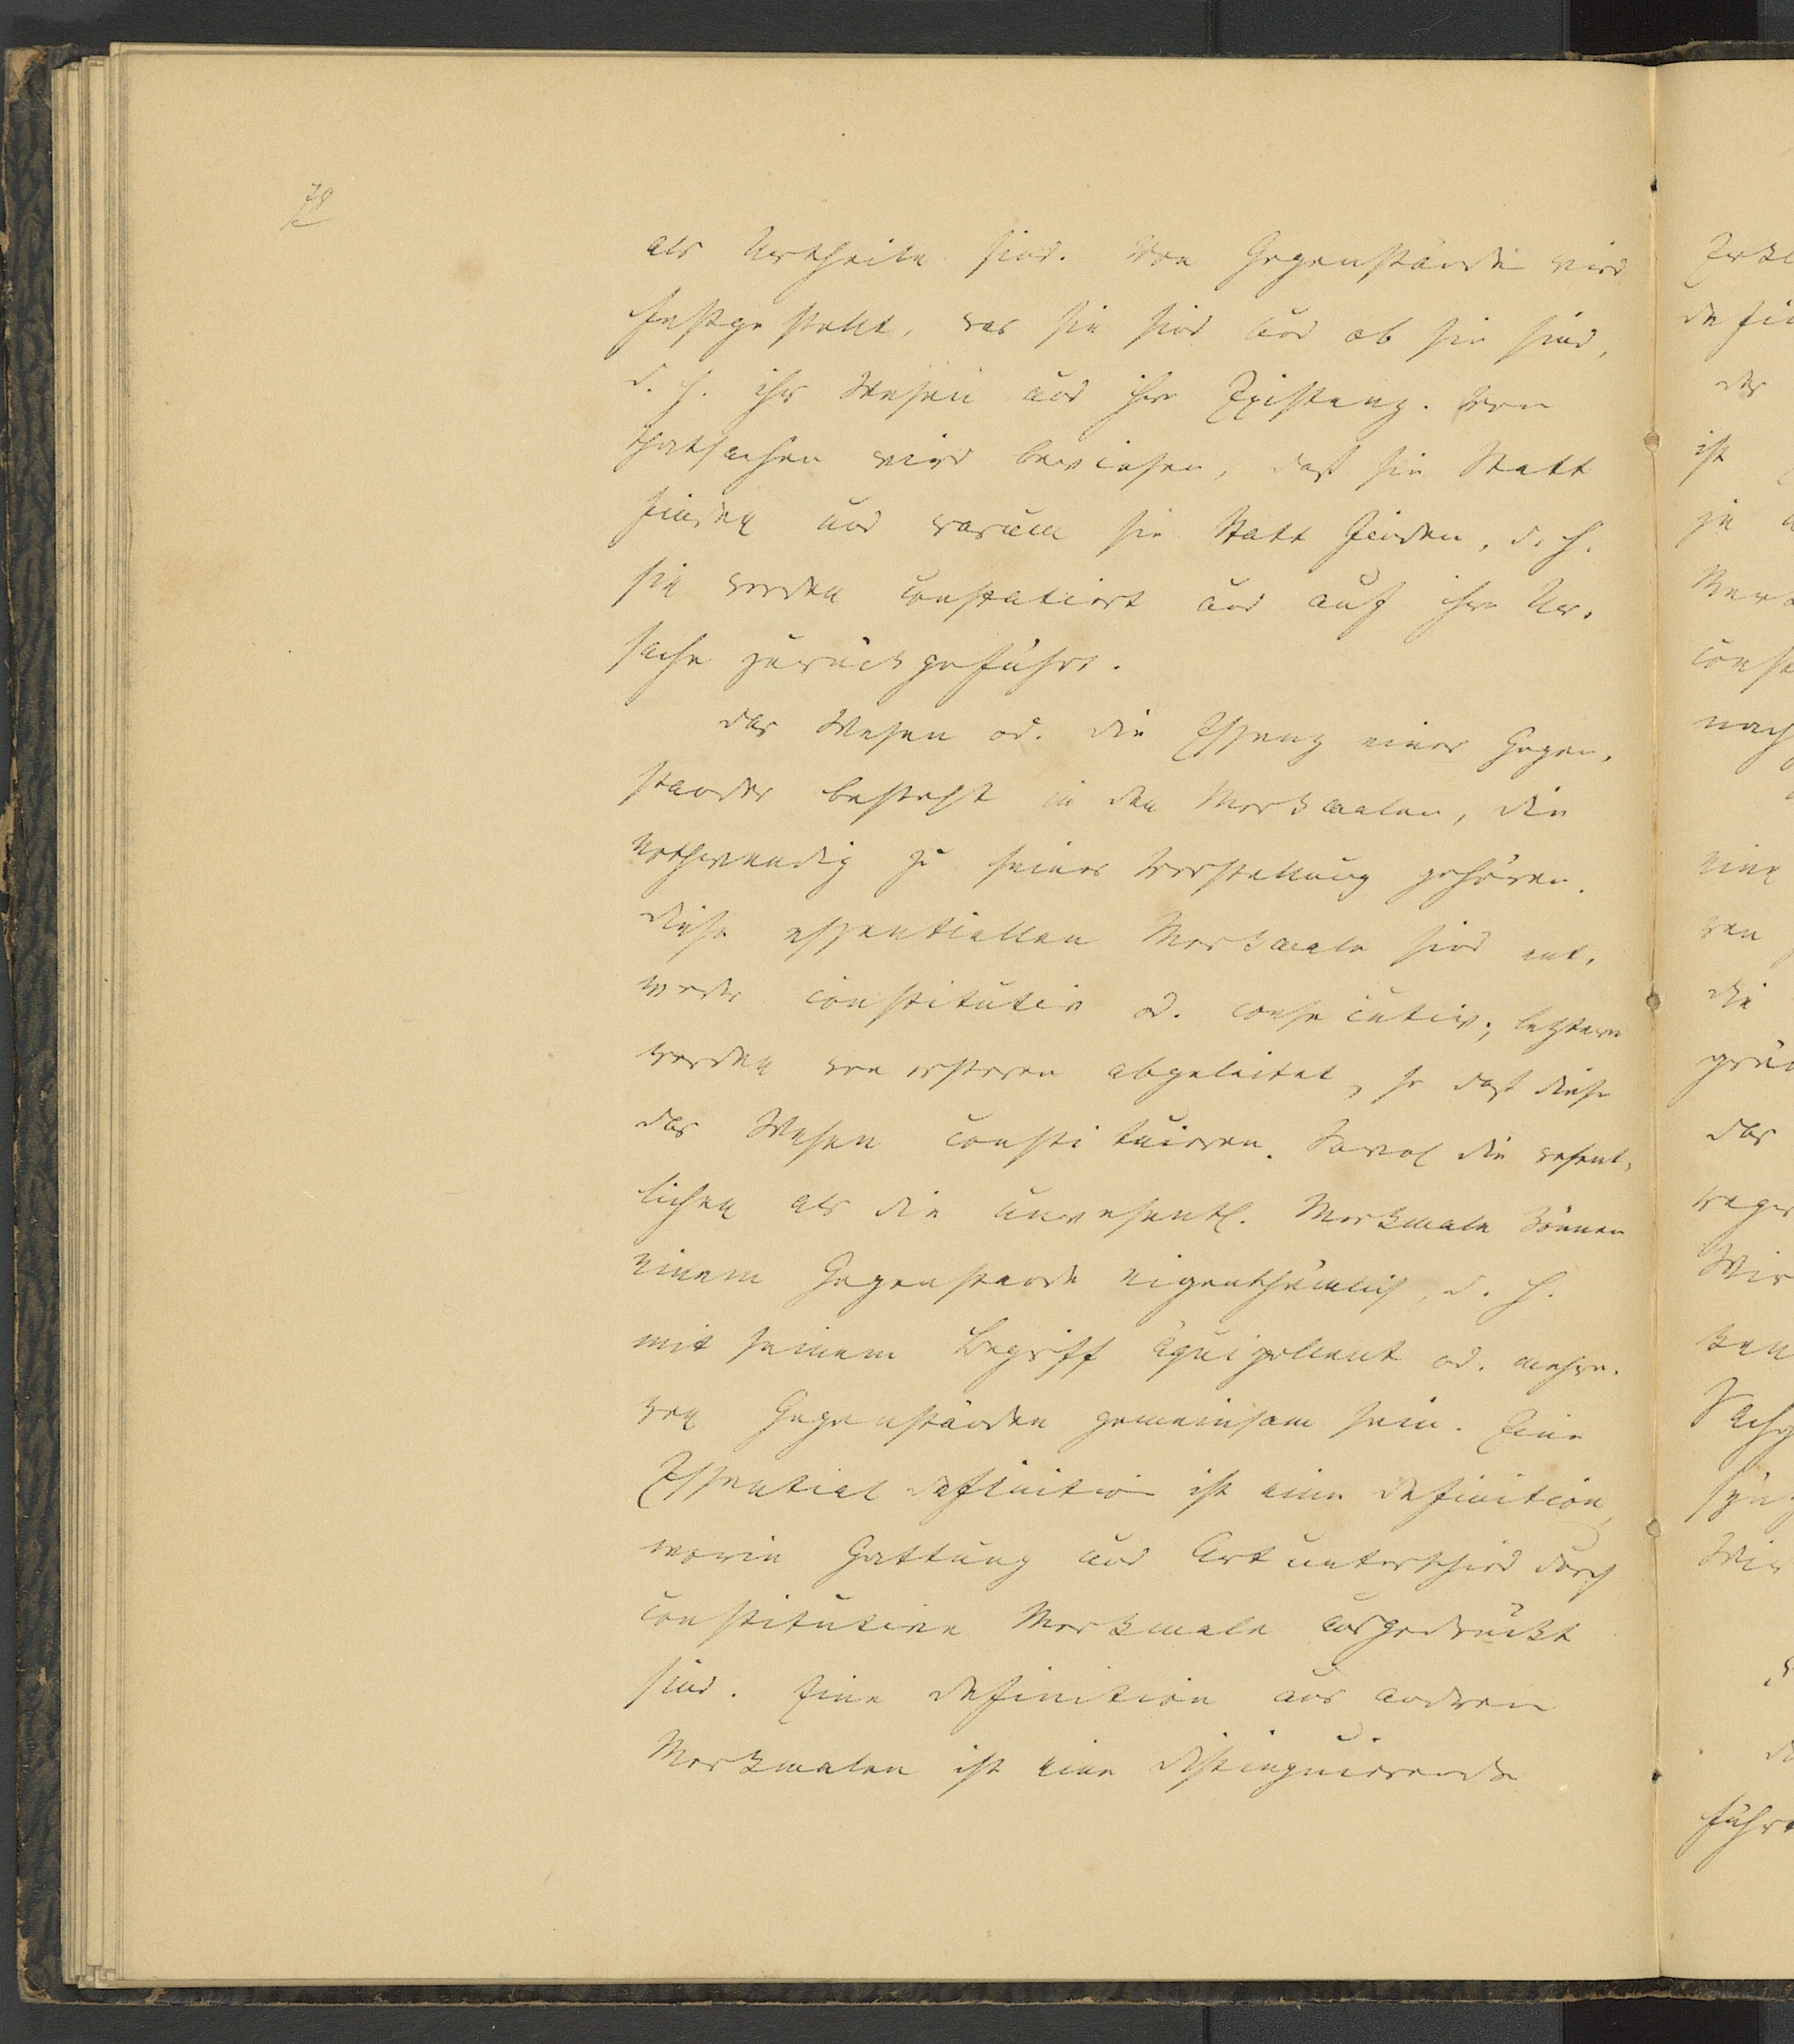 78
als Urtheile sind. Von Gegenständen wird
festgestellt, was sie sind und ob sie sind,
d. h. ihr Wesen und ihre Existenz. Von
Thatsachen wird bewiesen, daß sie Statt
finden und warum sie Statt finden, d. h.
sie werden constatiert und auf ihre Ur-
sache zurückgeführt.
Das Wesen od. die Essenz eines Gegen-
standes besteht in den Merkmalen, die
nothwendig zu seiner Vorstellung gehören.
Diese essentiellen Merkmale sind ent-
weder constitutiv od. consecutiv; letztere
werden von ersteren abgeleitet, so daß diese
das Wesen constituiren. Sowol die wesent-
lichen als die unwesentl. Merkmale können
einem Gegenstande eigenthümlich, d. h.
mit seinem Begriff äquipollent od. mehre-
ren Gegenständen gemeinsam sein. Eine
Essential definition ist eine Definition,
worin Gattung und Artunterschied durch
constitutive Merkmale ausgedrückt
sind. Eine Definition aus anderen
Merkmalen ist eine distinguierende